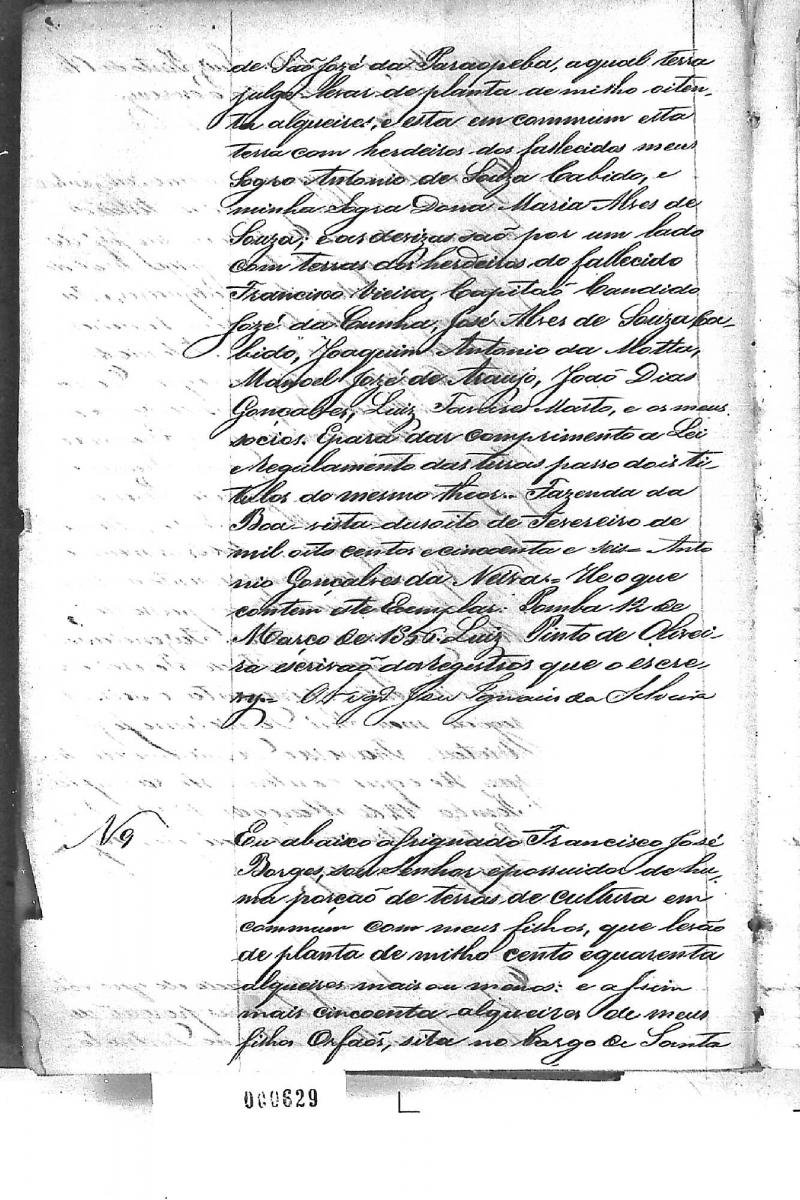 de São Jozé da Paraopeba, a qual terra
julgo levar de planta de milho oiten-
ta alqueires, e esta em commum esta
terra com herdeiros dos fallecidos meu
Sogro Antonio de Souza Cabido, e
minha Sogra Dona Maria Alves de
Souza; e as devizas saõ por um lado
com terras dos herdeiros do fallecido
Francisco Vieira, Capitaõ Candido
Jozé da Cunha, José Alves de Souza Ca-
bido, Joaquim Antonio da Motta,
Manoel Jozé de Araujo, Joaõ Dias
Gonçalves, Luiz Marto, e os meus
socios. Epara dar comprimento a Lei
e Regulamento das terras passo dois ti-
tulos do mesmo theor.. Fazenda da
Boa-vista dusoito de Fevereiro de
mil oito centos e cincoenta e seis= Anto
nio Gonçalves da Neiva= He o que
contem este Exemplar: Pomba 12 de
Março de 1856. Luiz Pinto de Olivei-
ra escrivaõ dos registros que o escre-
vy= O Vigr José Ignacio da Silveira
N 9
Eu abaixo assignado Francisco José
Borges, sou Senhor epossuidor de hu-
ma porçaõ de terras de cultura em
commum com meus filhos, que levaõ
de planta de milho cento equarenta
alqueires mais ou menos: e assim
mais cincoenta alqueires de meus
filhos Orfaõs, sita no Cargo de Santa
000629